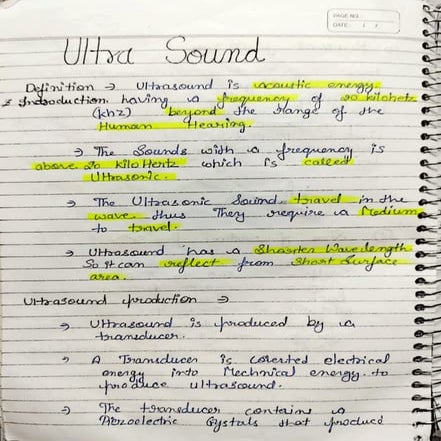 PAGE NO.
DATE: / /
Ultra Sound
Definition → Ultrasound is acoustic energy
& Introduction. having a frequency of 20 kilohetz
(khz) beyond the range of the
Human Hearing.
→ The Sounds with a frequency is
above 20 kilo Hertz which is called
Ultrasonic.
→ The Ultrasonic Sound travel in the
wave thus They require a Medium
to travel.
→ Ultrasound has a Shorter Wavelength
So it can reflect from Short Surface
area.
Ultrasound production →
→ Ultrasound is produced by a
transducer.
→ A Transducer is coverted electrical
energy into Mechnical energy. to
produce ultrasound.
→ The transducer contains a
Piezoelectric Crystals that produced